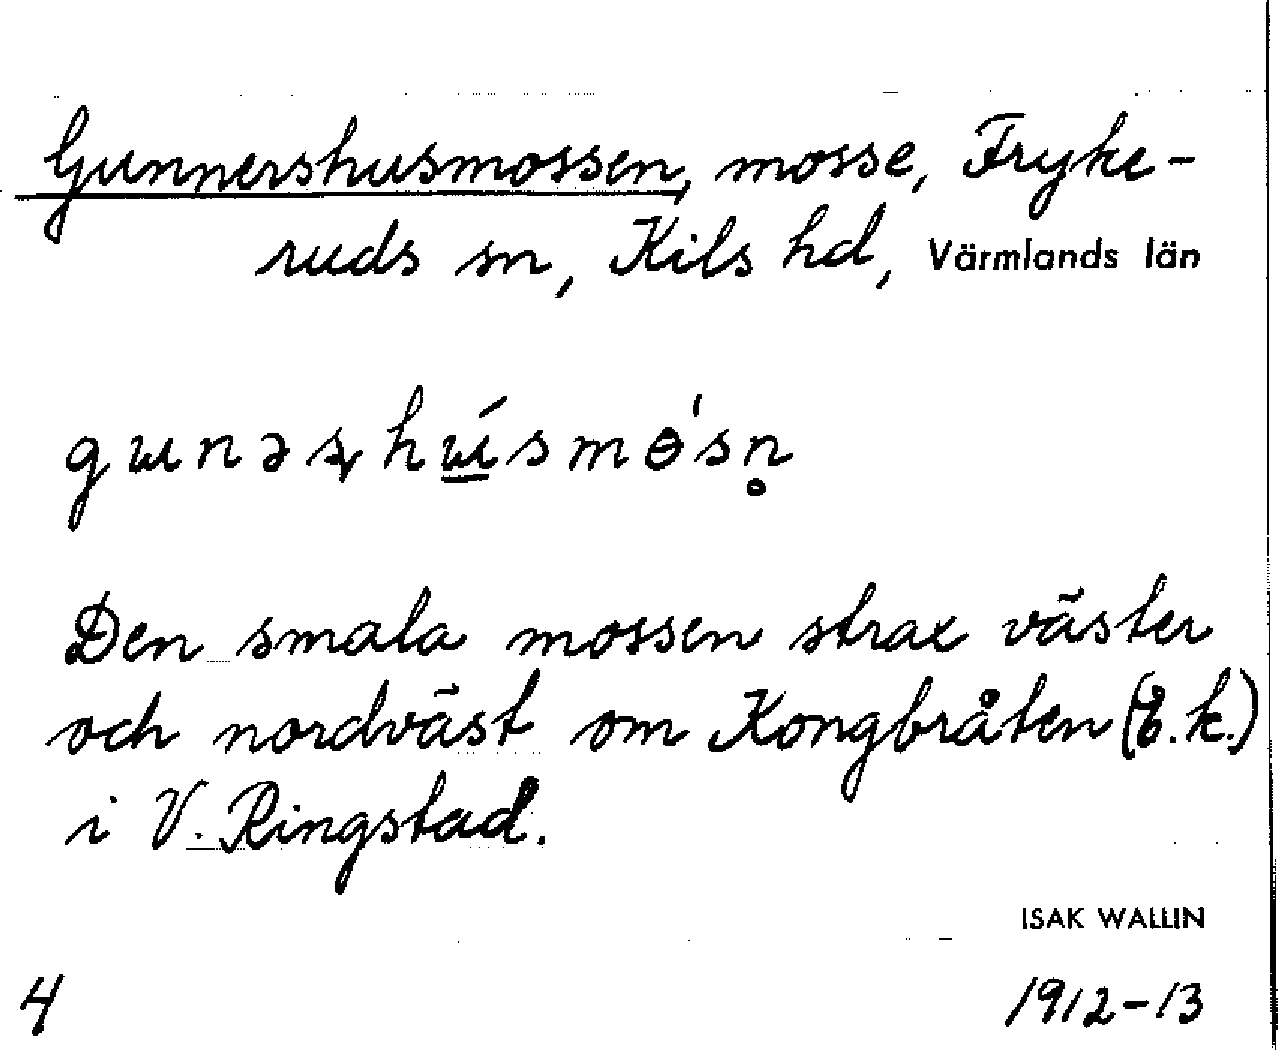 Gunnershusmossen, mosse, Fryke-
ruds sn, Kils hd, Värmlands län
gɯnəʂhɯ́smɵ'sn̥
Den smala mossen strax väster
och nordväst om Kongbråten (E.k.)
i V. Ringstad.
ISAK WALLIN
4 1912-13